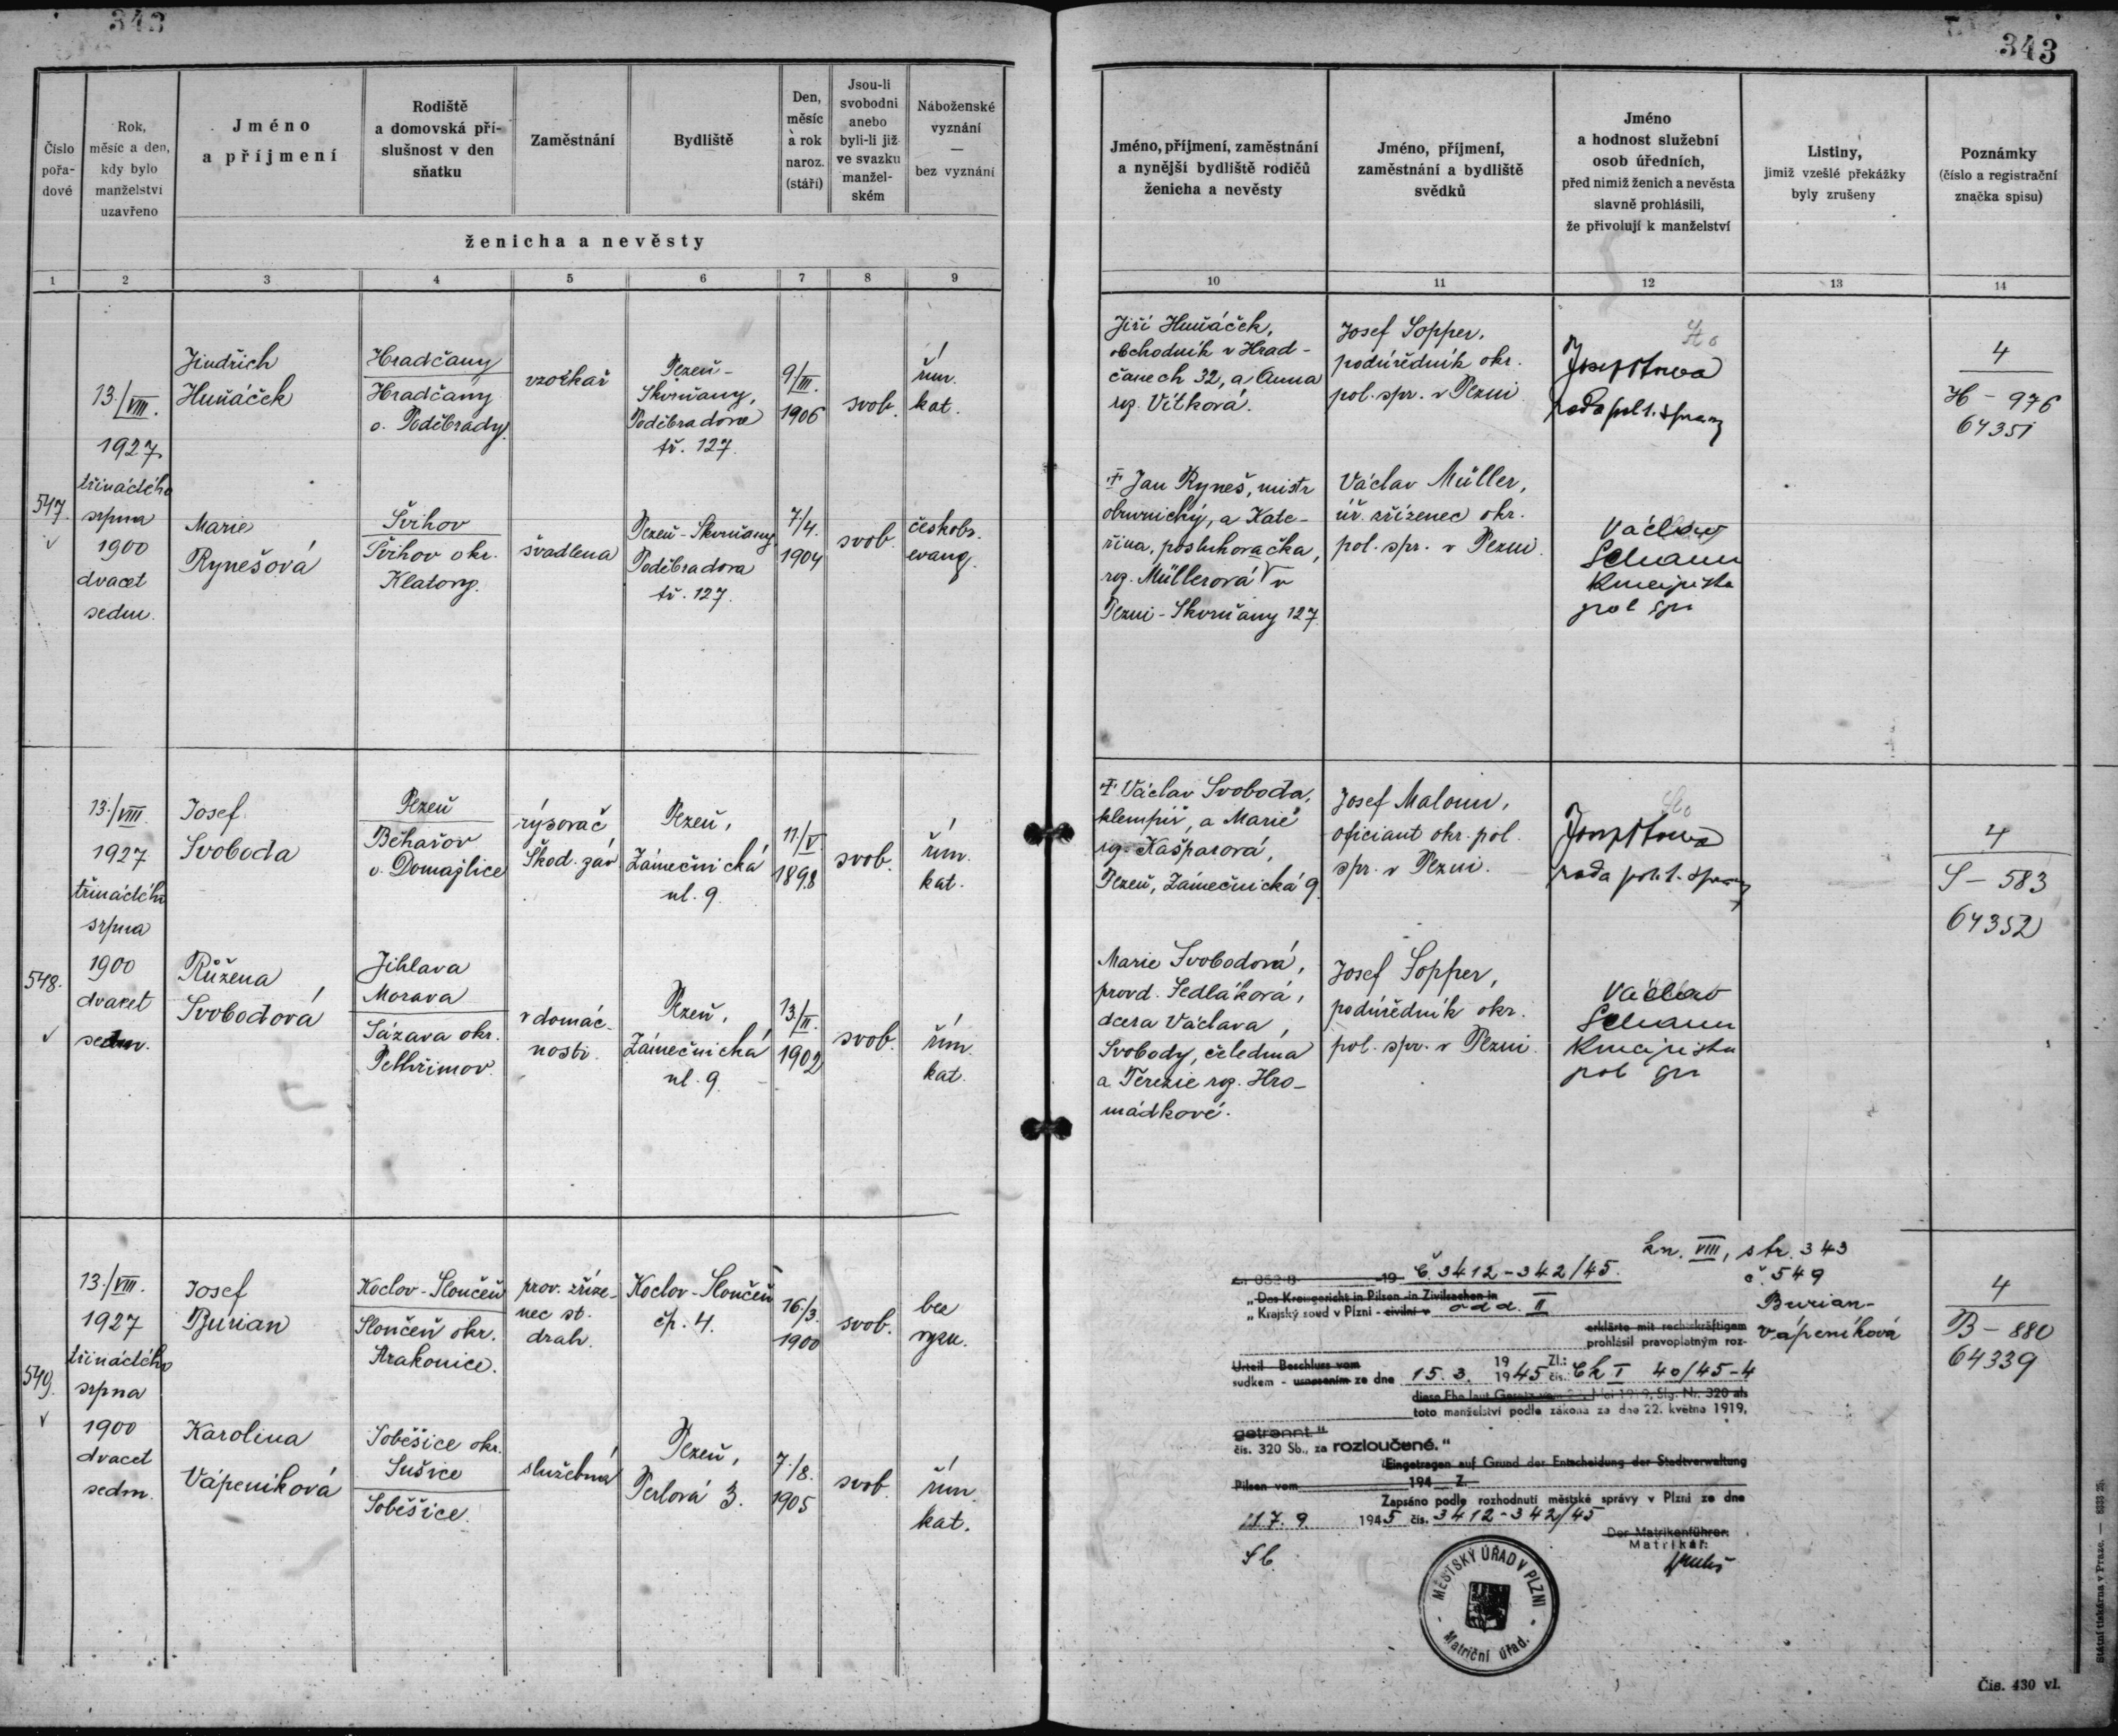 343
343
Číslo
pořa-
dové
Rok,
měsíc a den,
kdy bylo
manželství
uzavřeno
Jméno
a příjmení
Rodiště
a domovská pří-
slušnost v den
sňatku
Zaměstnání
Bydliště
Den,
měsíc
a rok
naroz.
(stáří)
Jsou-li
svobodni
anebo
byli-li již
ve svazku
manžel-
ském
Náboženské
vyznání
—
bez vyznání
ženicha a nevěsty
Jméno, příjmení, zaměstnání
a nynější bydliště rodičů
ženicha a nevěsty
Jméno, příjmení,
zaměstnání a bydliště
svědků
Jméno
a hodnost služební
osob úředních,
před nimiž ženich a nevěsta
slavně prohlásili,
že přivolují k manželství
Listiny,
jimiž vzešlé překážky
byly zrušeny
Poznámky
(číslo a registrační
značka spisu)
1 2 3 4 5 6 7 8 9 10 11 12 13 14
547.
13./VIII.
1927
třináctého
srpna
1900
dvacet
sedm.
Jindřich
Huňáček
Hradčany
Hradčany
o. Poděbrady.
vzorkař
Plzeň-
Skvrňany,
Poděbradova
tř. 127.
9./III.
1906
svob.
řím.
kat.
Jiří Huňáček,
obchodník v Hrad-
čanech 32, a Anna
roz. Vítková.
Josef Sopper,
podúředník okr.
pol. spr. v Plzni
rada polit. správy
4
H – 976
64351
Marie
Rynešová
Švihov
Švihov okr.
Klatovy.
švadlena
Plzeň-Skvrňany,
Poděbradova
tř. 127.
7/4.
1904
svob.
českobr.
evang.
† Jan Ryneš, mistr
obuvnický, a Kate-
řina, posluhovačka,
roz. Müllerová v
Plzni-Skvrňany 127.
Václav Müller,
úř. zřízenec okr.
pol. spr. v Plzni.
Václav
pol spr
548.
13./VIII.
1927
třináctého
srpna
1900
dvacet
sedm.
Josef
Svoboda
Plzeň
Běhařov
o. Domažlice
rýsovač
Škod. záv.
Plzeň,
Zámečnická
ul. 9.
11/V.
1898
svob.
řím.
kat.
† Václav Svoboda,
klempíř, a Marie
roz. Kašparová,
Plzeň, Zámečnická 9.
Josef Maloun,
oficiant okr. pol.
spr. v Plzni.
rada polit. správy
4
S – 583
64352
Růžena
Svobodová
Jihlava
Morava
Sázava okr.
Pelhřimov.
v domác-
nosti.
Plzeň,
Zámečnická
ul. 9.
13/II.
1902
svob.
řím.
kat.
Marie Svobodová,
provd. Sedláková,
dcera Václava
Svobody, čeledína
a Terezie roz. Hro-
mádkové.
Josef Sopper,
podúředník okr.
pol. spr. v Plzni.
Václav
pol spr
549.
13./VIII.
1927
třináctého
srpna
1900
dvacet
sedm.
Josef
Burian
Koclov-Slončeň
Slončeň okr.
Strakonice.
prov. zříze-
nec st.
drah.
Koclov-Slončeň
čp. 4.
16/3.
1900
svob.
bez
vyzn.
Karolina
Vápeníková
Soběšice okr.
Sušice
Soběšice.
služebná
Plzeň,
Perlová 3.
7./8.
1905
svob.
řím.
kat.
kn. VIII, str. 343
č. 549
Burian-
Vápeníková
19 Č. 3412-342/45.
„Das Kreisgericht in Pilsen in Zivilsachen in
„Krajský soud v Plzni - civilní v odd. II
erklärte mit rechtskräftigem
prohlásil pravoplatným roz-
Urteil - Beschluss vom 19 Zl.:
sudkem - usnesením ze dne 15. 3. 1945 čís. Ck I 40/45-4
diese Ehe laut Gesetz vom 22. Mai 1919, Slg. Nr. 320 als
toto manželství podle zákona ze dne 22. května 1919,
getrennt“
čís. 320 Sb., za rozloučené.“
Eingetragen auf Grund der Entscheidung der Stadtverwaltung
Pilsen vom 194 Z.
Zapsáno podle rozhodnutí městské správy v Plzni ze dne
1945 čís. 3412-342/45
Der Matrikenführer:
Matrikář:
MĚSTSKÝ ÚŘAD V PLZNI
Matriční úřad.
4
B – 880
64339
Státní tiskárna v Praze. — 8333 25.
Čis. 430 vl.